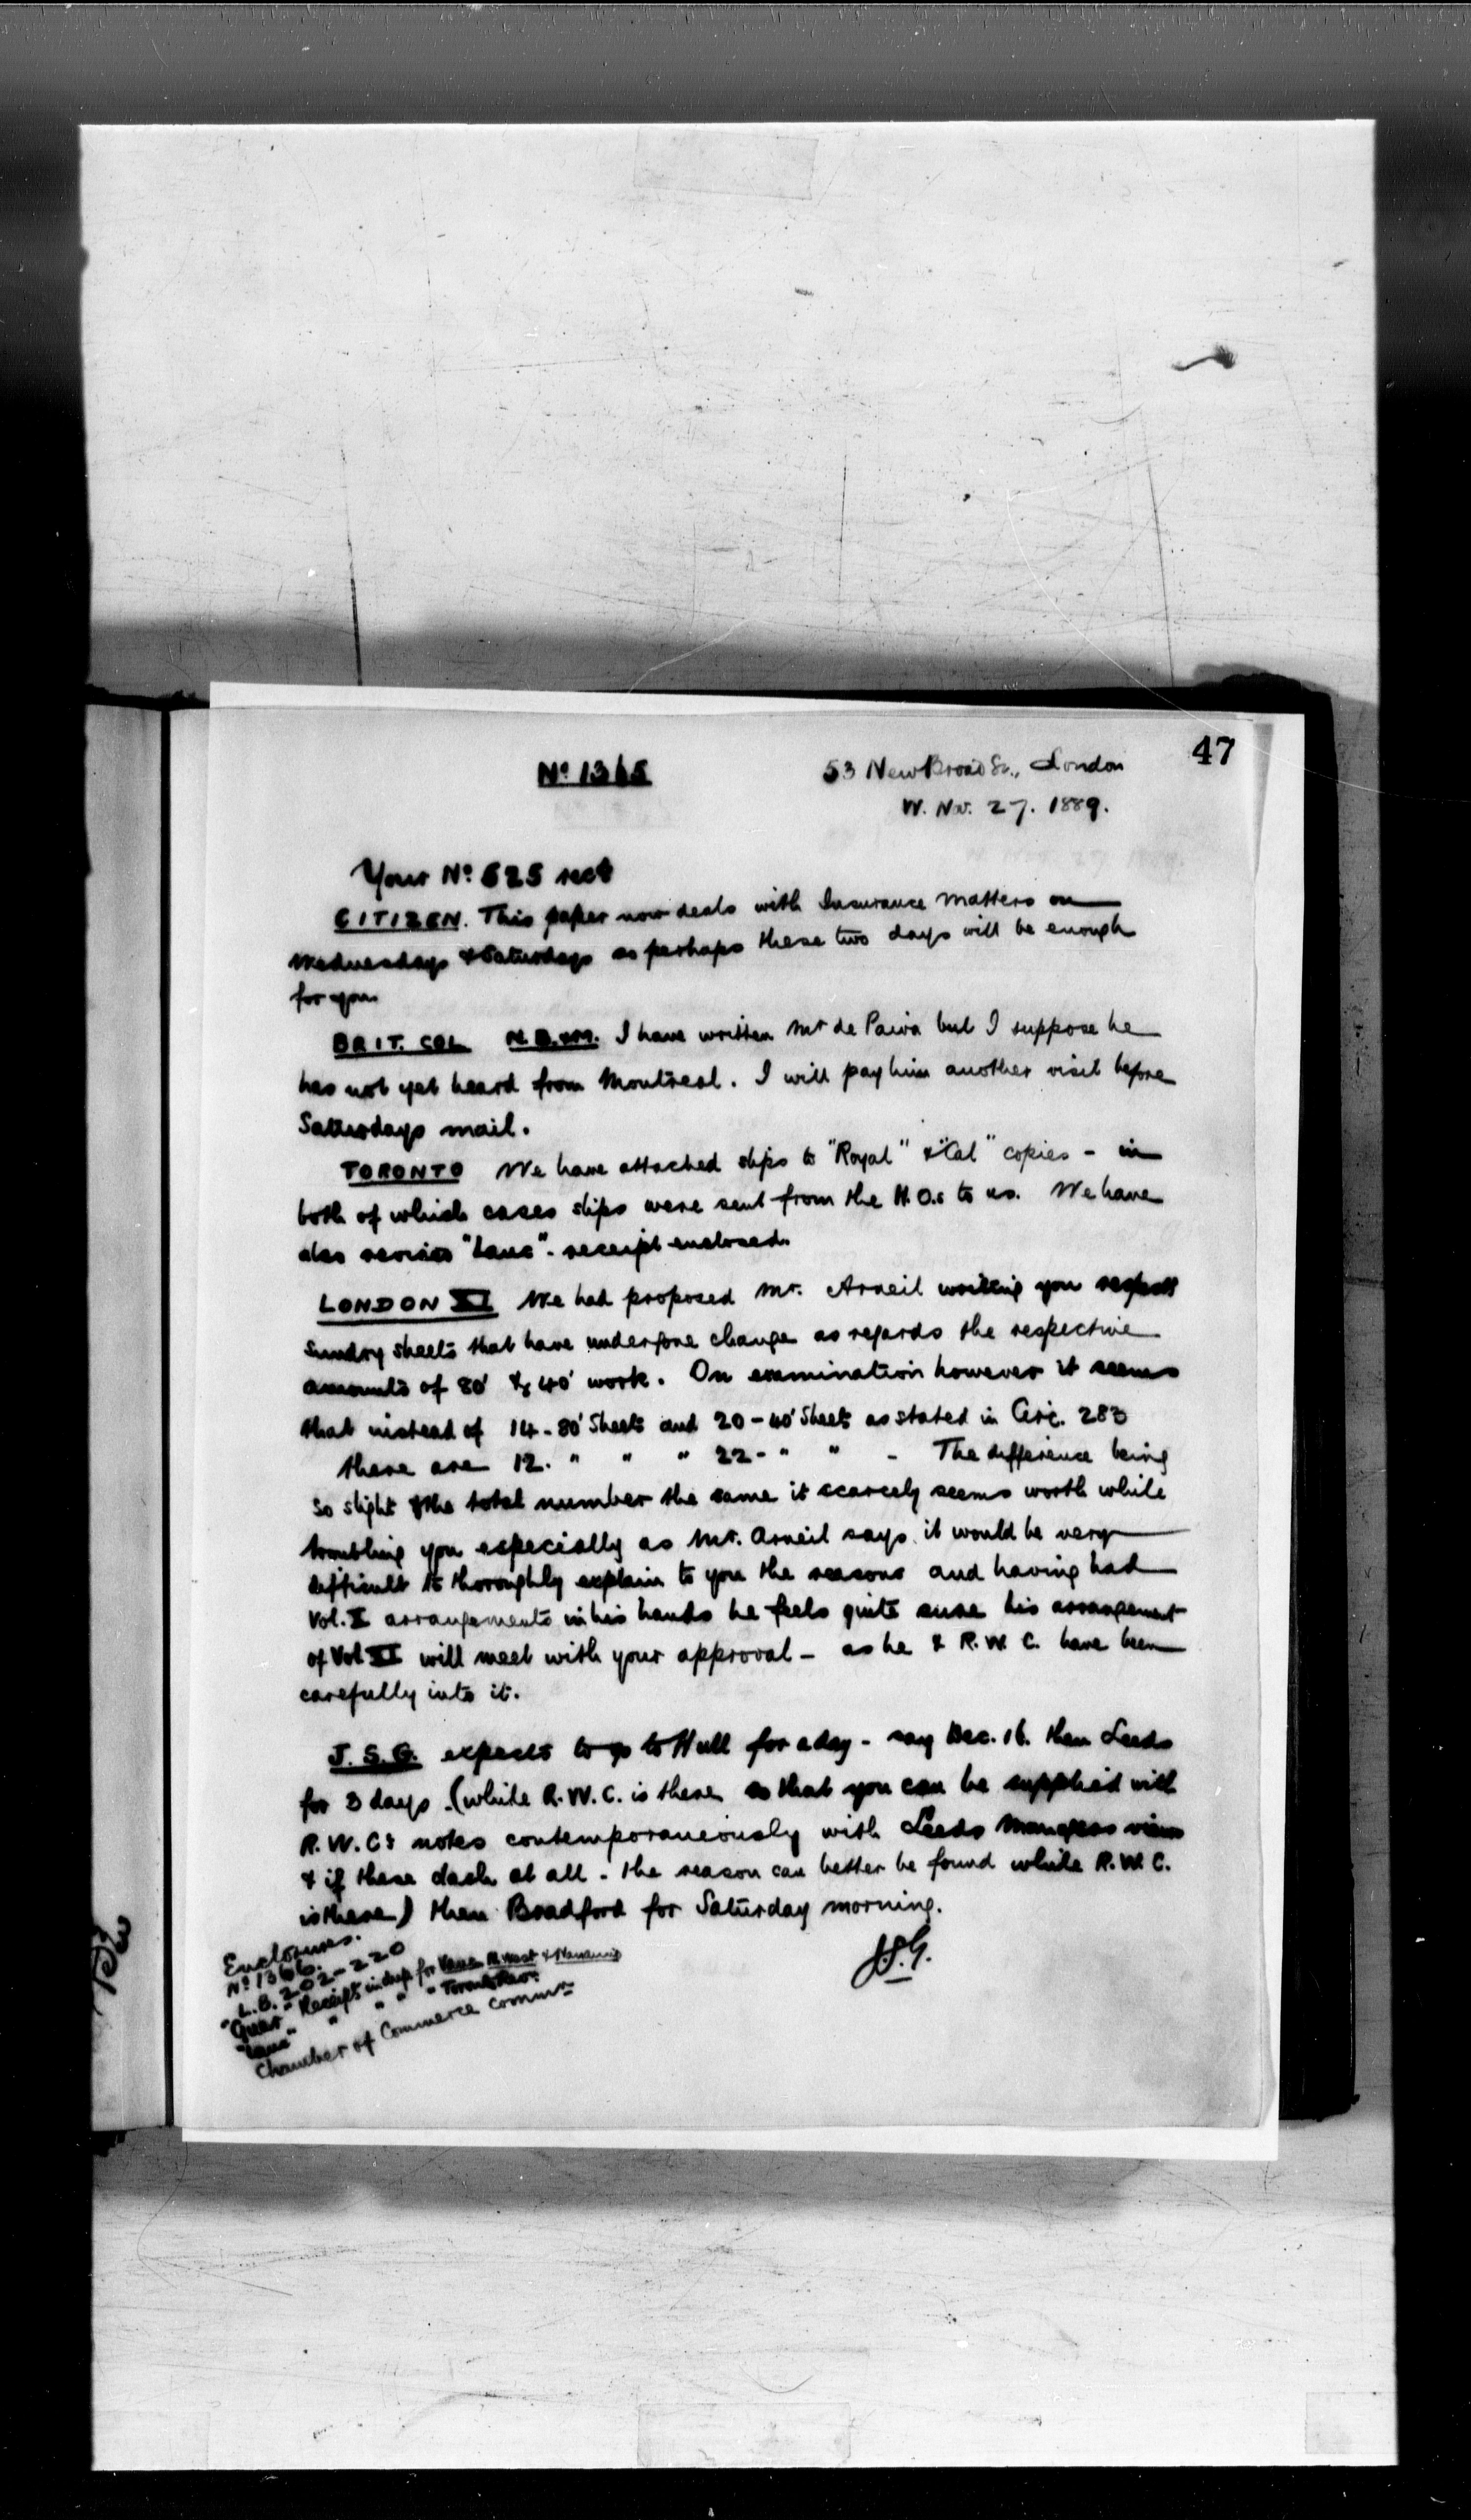 47
No 1365
53 New Broad St., London
W. Nov. 27. 1889.
Your No 625 recd
CITIZEN. This paper now deals with Insurance matters on
Wednesdays & Saturdays so perhaps these two days will be enough
for you.
BRIT. COL N.B.&M. I have written Mr de Paiva but I suppose he
has not yet heard from Montreal. I will pay him another visit before
Saturdays mail.
TORONTO We have attached slips to "Royal" & "Cal" copies - in
both of which cases slips were sent from the H.O.s to us. We have
also revised "Lanc" - receipt enclosed.
LONDON XI We had proposed Mr. Arneil writing you
sundry sheets that have undergone change as regards the respective
amounts of 80' & 40' work. On examination however it seems
that instead of 14-80' Sheets and 20-40' Sheets as stated in Circ. 283
there are 12. " " " 22- " " - The difference being
so slight & the total number the same it scarcely seems worth while
troubling you especially as Mr. Arneil says it would be very
difficult to thoroughly explain to you the reasons and having had
Vol. X arrangements in his hands he feels quite sure his arrangement
of Vol XI will meet with your approval - as he & R.W.C. have been
carefully into it.
J.S.G. expects to go to Hull for a day - say Dec. 16. then Leeds
for 3 days (while R.W.C. is there so that you can be supplied with
R.W.C's notes contemporaneously with Leeds Managers views
& if these clash at all - the reason can better be found while R.W.C.
is there) then Bradford for Saturday morning.
J.S.G.
Enclosures.
No 1366.
L.B. 202-220
"Guar" Receipts in dup. for Vanc. N. West & Nanaimo
"Lanc" " " " Toronto Revn
Chamber of Commerce Commn